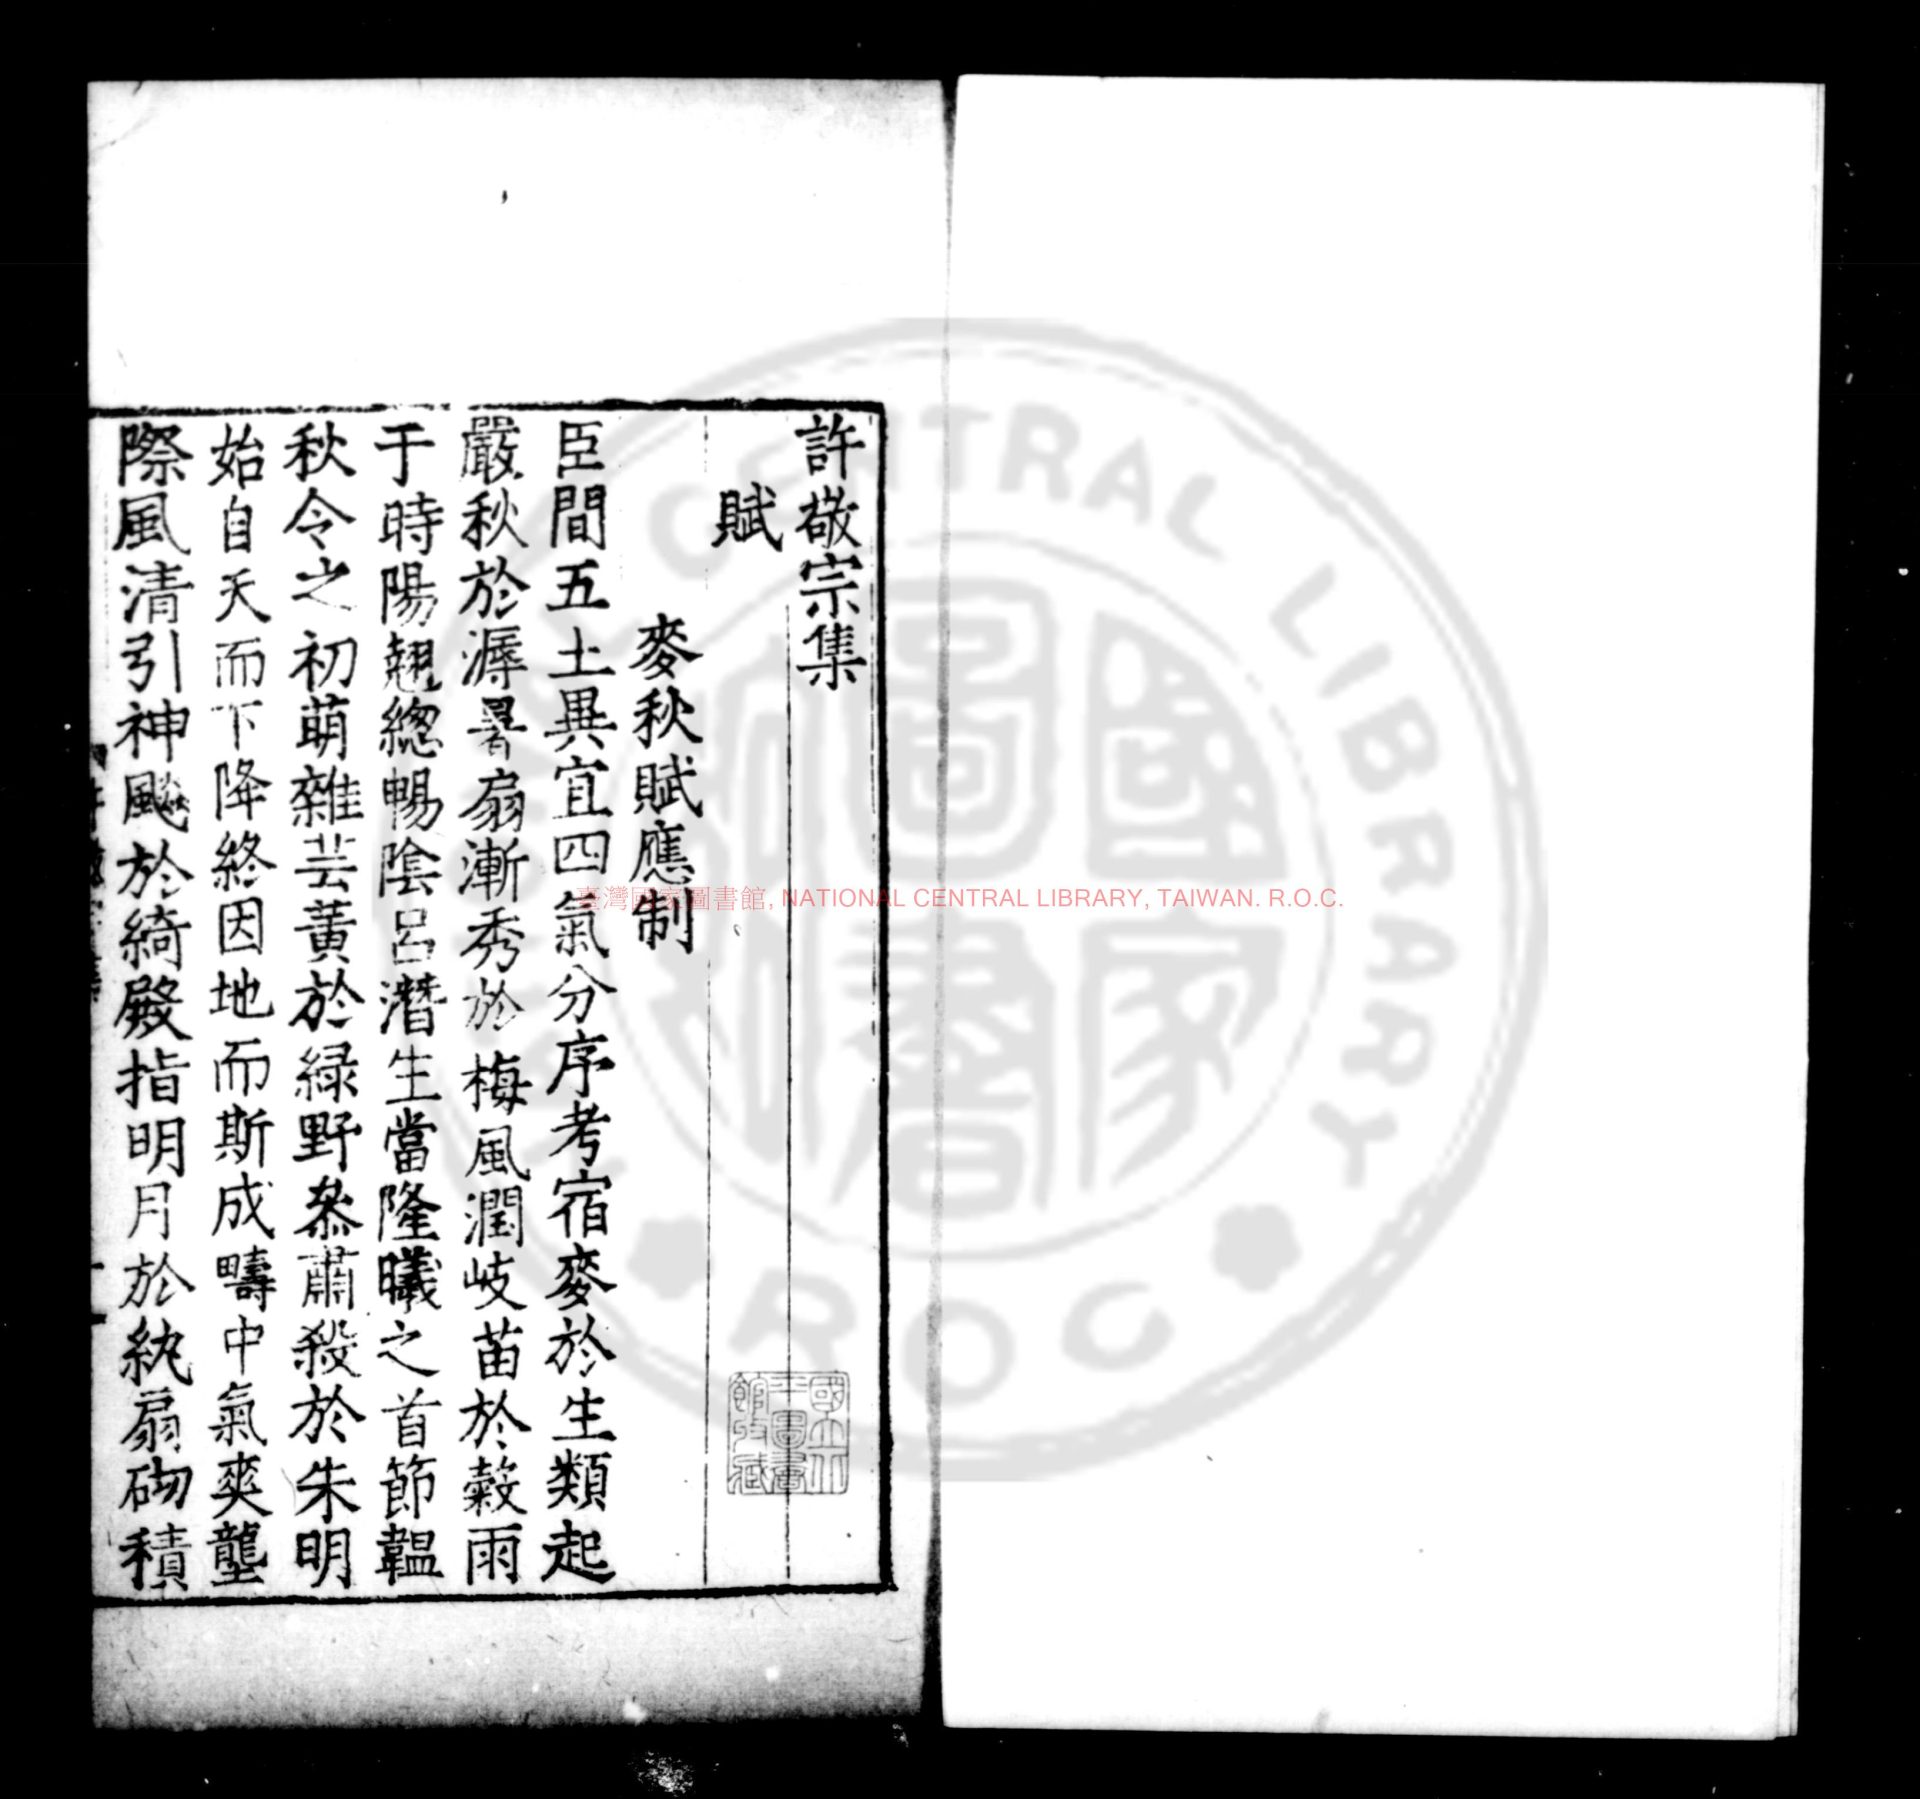 許敬宗集
賦
麥秋賦應制
臣間五土異宜四氣分序考宿麥於生類起
嚴秋於溽暑扇漸秀於梅風潤岐苗於穀雨
于時陽翹總暢陰呂潛生當隆曦之首節韞
秋令之初萌雜芸黃於緑野叅肅殺於朱明
始自天而下降終因地而斯成疇中氣爽壟
際風清引神飈於綺殿指明月於紈扇砌積
國立北
平圖書
館收藏
臺灣國家圖書館, NATIONAL CENTRAL LIBRARY, TAIWAN. R.O.C.
NATIONAL CENTRAL LIBRARY
ROC
國家
圖書